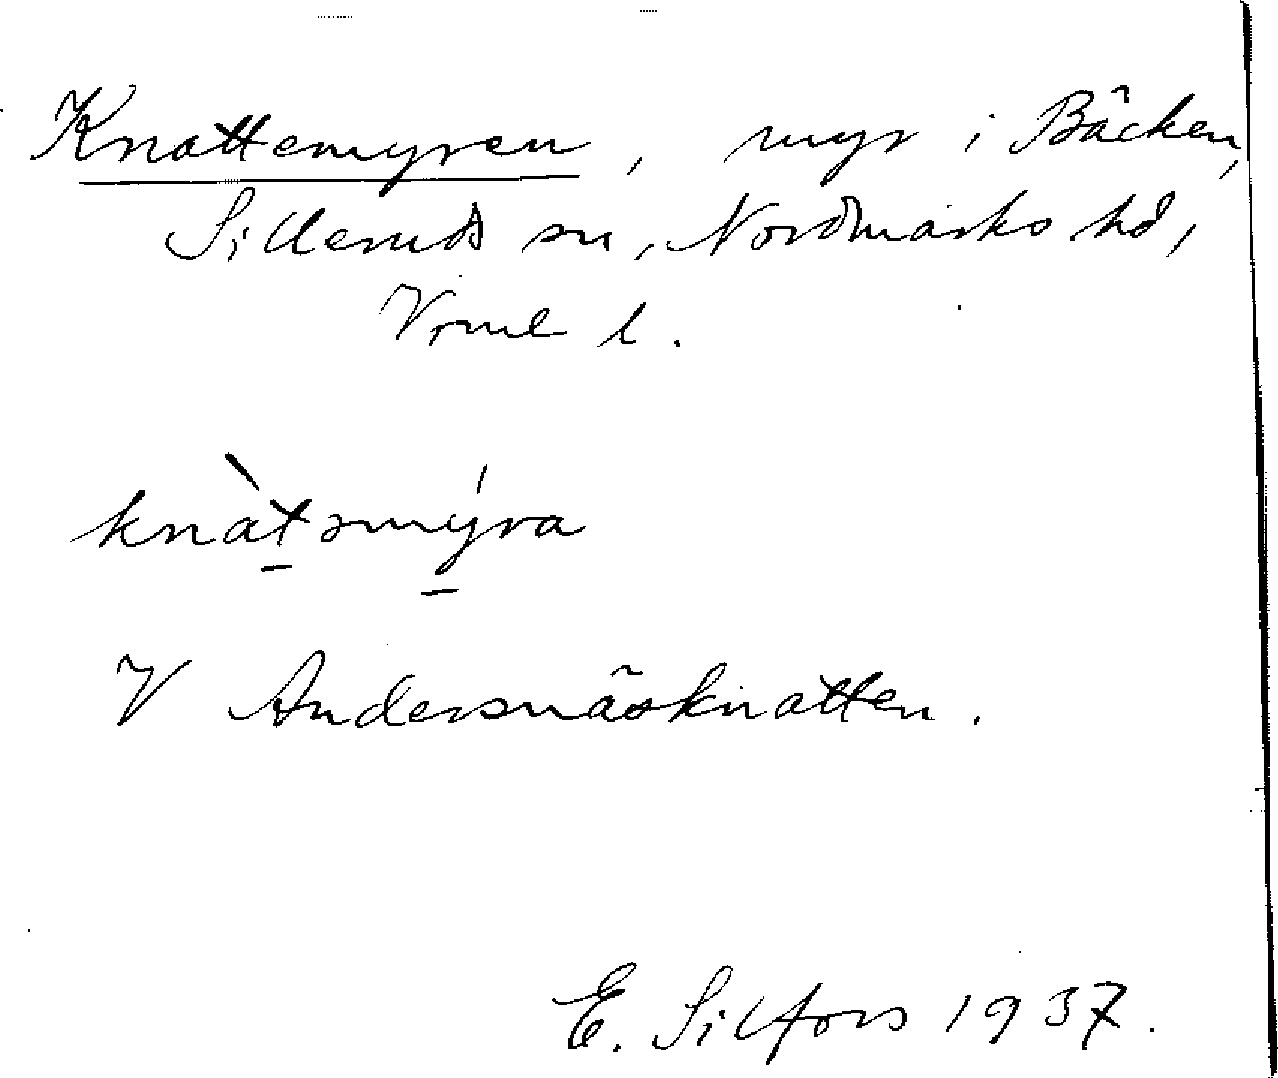 Knattemyren, myr i Bäcken,
Silleruds sn, Nordmarks hd,
Vrml l.
knàtəmy̍ra
V Andersnäsknatten.
E. Silfors 1937.